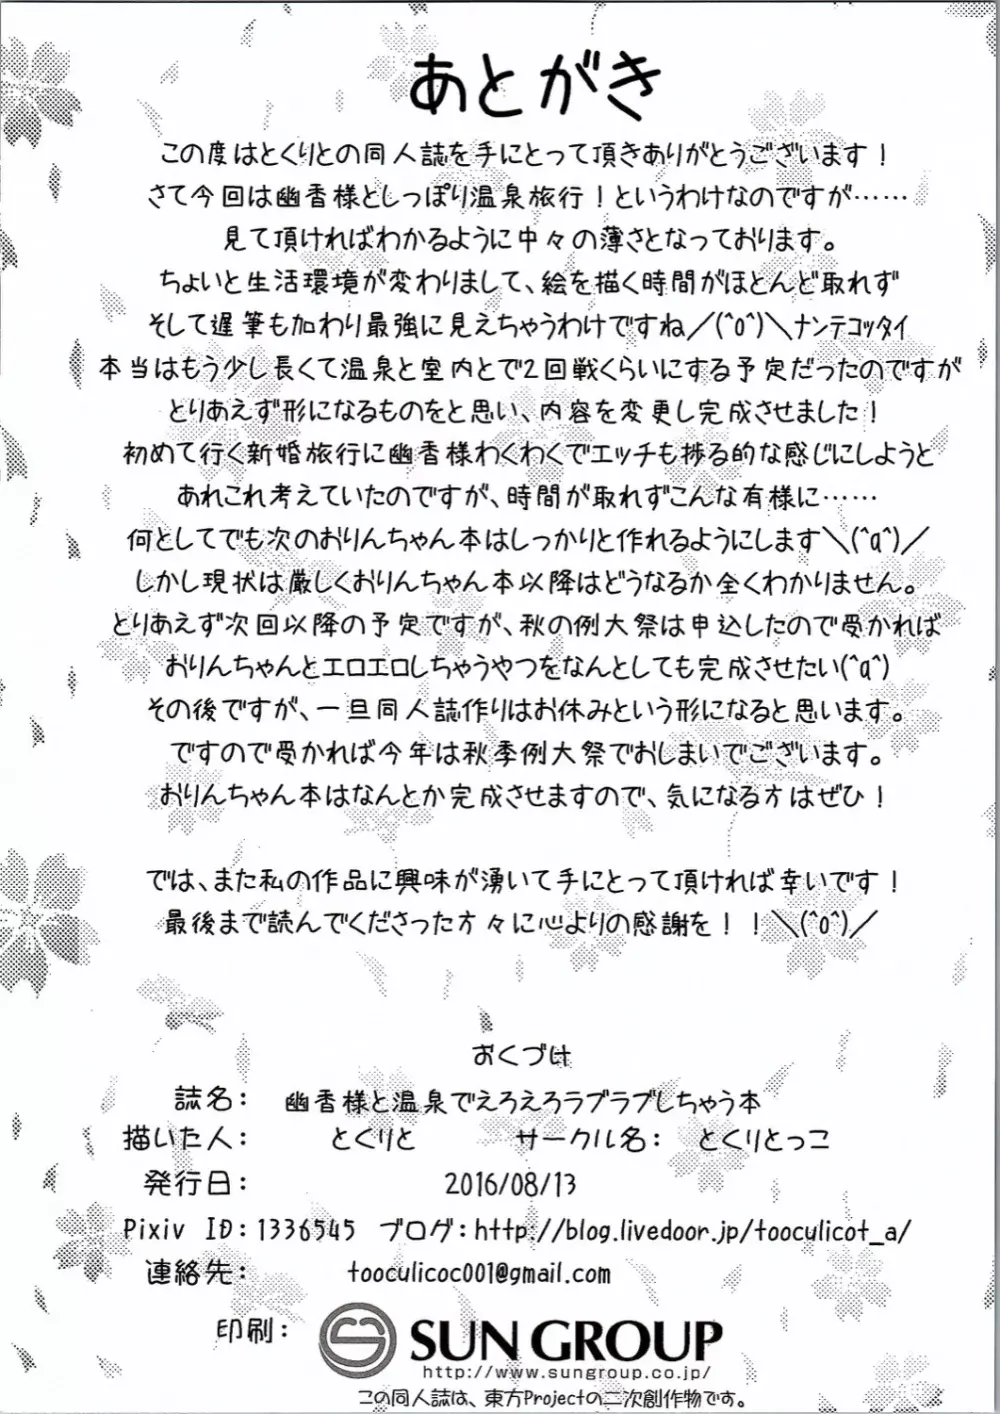 あとがき
この度はとくりとの同人誌を手にとって頂きありがとうございます！
さて今回は幽香様としっぽり温泉旅行！というわけなのですが……
見て頂ければわかるように中々の薄さとなっております。
ちょいと生活環境が変わりまして、絵を描く時間がほとんど取れず
そして遅筆も加わり最強に見えちゃうわけですね／(^o^)＼ナンテコッタイ
本当はもう少し長くて温泉と室内とで2回戦くらいにする予定だったのですが
とりあえず形になるものをと思い、内容を変更し完成させました！
初めて行く新婚旅行に幽香様わくわくでエッチも捗る的な感じにしようと
あれこれ考えていたのですが、時間が取れずこんな有様に……
何としてでも次のおりんちゃん本はしっかりと作れるようにします＼(^q^)／
しかし現状は厳しくおりんちゃん本以降はどうなるか全くわかりません。
とりあえず次回以降の予定ですが、秋の例大祭は申込したので受かれば
おりんちゃんとエロエロしちゃうやつをなんとしても完成させたい(^q^)
その後ですが、一旦同人誌作りはお休みという形になると思います。
ですので受かれば今年は秋季例大祭でおしまいでございます。
おりんちゃん本はなんとか完成させますので、気になる方はぜひ！
では、また私の作品に興味が湧いて手にとって頂ければ幸いです！
最後まで読んでくださった方々に心よりの感謝を！！＼(^o^)／
おくづけ
誌名： 幽香様と温泉でえろえろラブラブしちゃう本
描いた人： とくりと サークル名： とくりとっこ
発行日： 2016/08/13
Pixiv ID：1336545 ブログ：http://blog.livedoor.jp/tooculicot_a/
連絡先： tooculicoc001@gmail.com
印刷： SUN GROUP
http://www.sungroup.co.jp/
この同人誌は、東方Projectの二次創作物です。